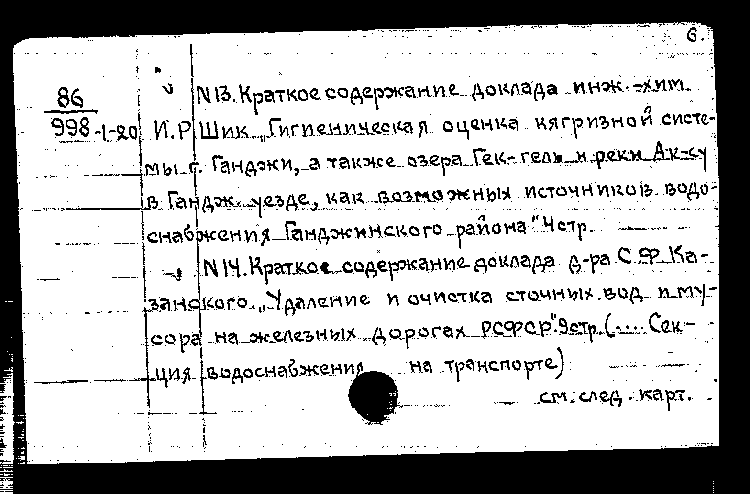 6.
N13. Краткое содержание доклада инж.-хим.
86
998-1-20 И.Р. Шик „Гигиеническая оценка кягризной систе-
мы г. Ганджи, а также озера Гек-гель и реки Ак-су
в Гандж. уезде, как возможных источников водо-
снабжения Ганджинского района" 4стр.
N14. Краткое содержание доклада д-ра С.Ф. Ка-
занского „Удаление и очистка сточных вод и му-
сора на железных дорогах РСФСР". 9стр. (.... Сек-
ция водоснабжения на транспорте)
см. след. карт.